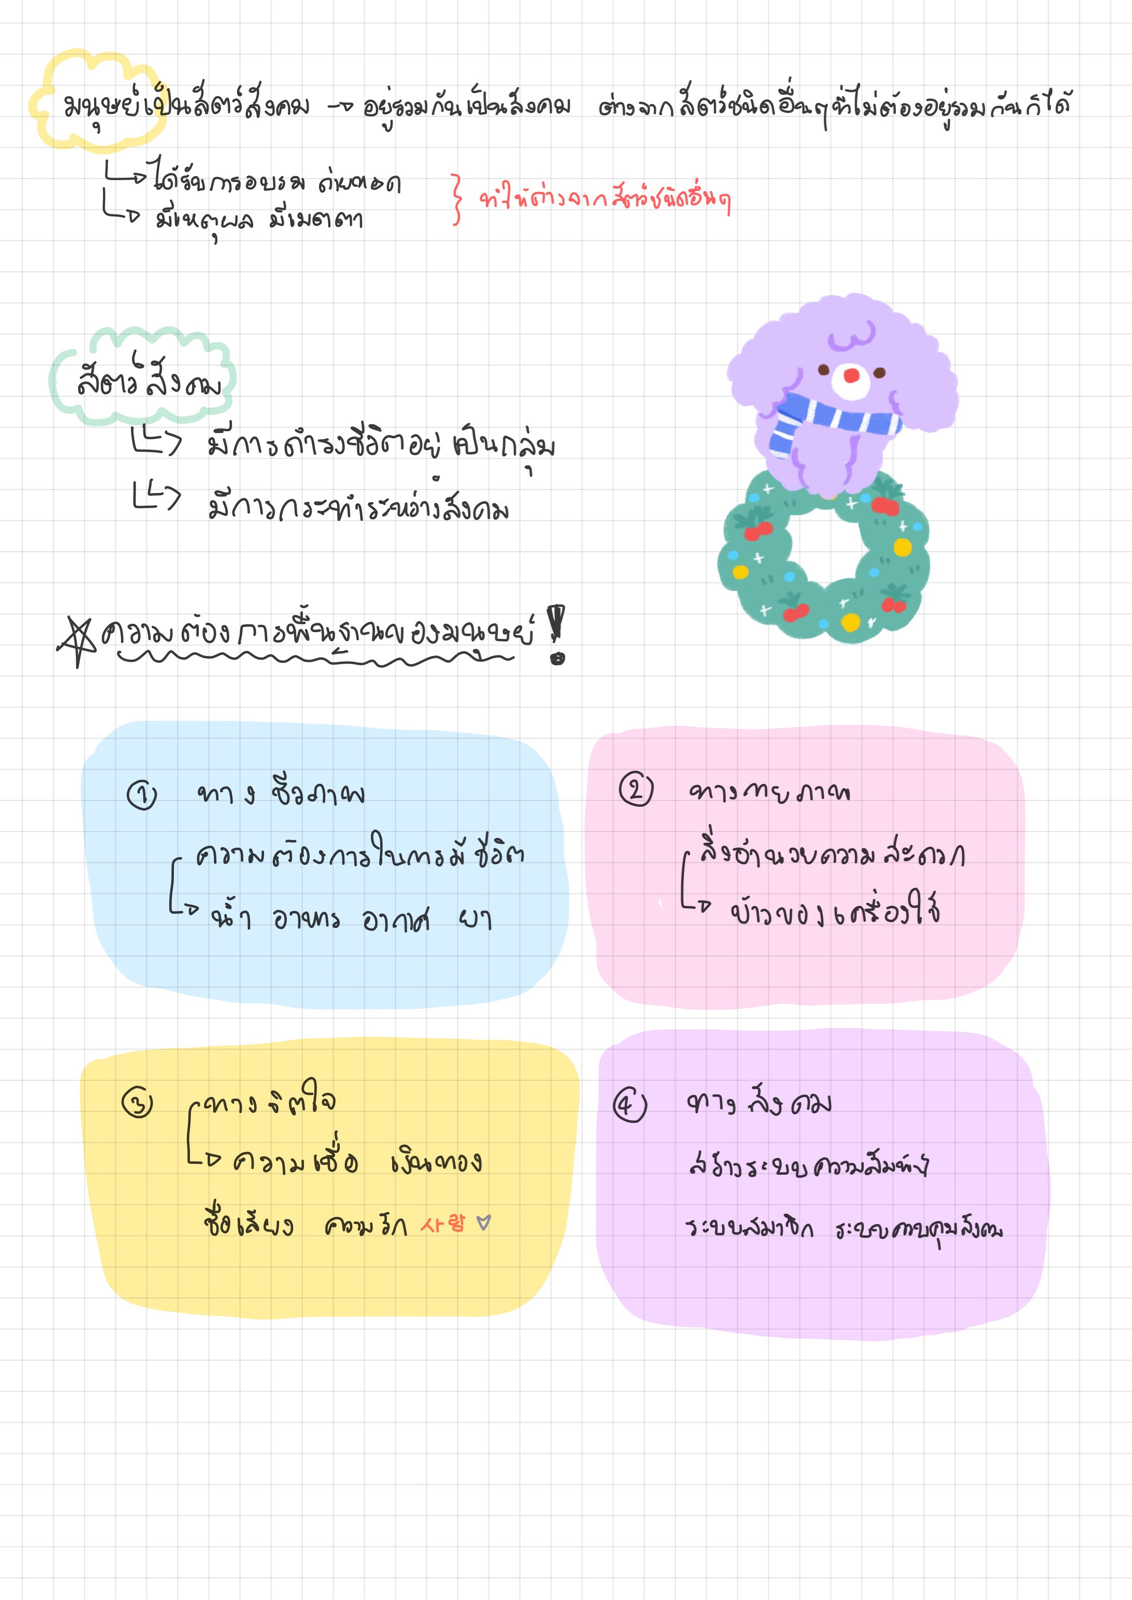 มนุษย์เป็นสัตว์สังคม → อยู่รวมกันเป็นสังคม ต่างจากสัตว์ชนิดอื่นๆที่ไม่ต้องอยู่รวมกันก็ได้
ได้รับการอบรม ถ่ายทอด
มีเหตุผล มีเมตตา
ทำให้ต่างจากสัตว์ชนิดอื่นๆ
สัตว์สังคม
มีการดำรงชีวิตอยู่เป็นกลุ่ม
มีการกระทำระหว่างสังคม
ความต้องการพื้นฐานของมนุษย์!
① ทางชีวภาพ
ความต้องการในการมีชีวิต
น้ำ อาหาร อากาศ ยา
② ทางกายภาพ
สิ่งอำนวยความสะดวก
ข้าวของเครื่องใช้
③ ทางจิตใจ
ความเชื่อ เงินทอง
ชื่อเสียง ความรัก 사랑 ♡
④ ทางสังคม
สร้างระบบความสัมพันธ์
ระบบสมาชิก ระบบควบคุมสังคม